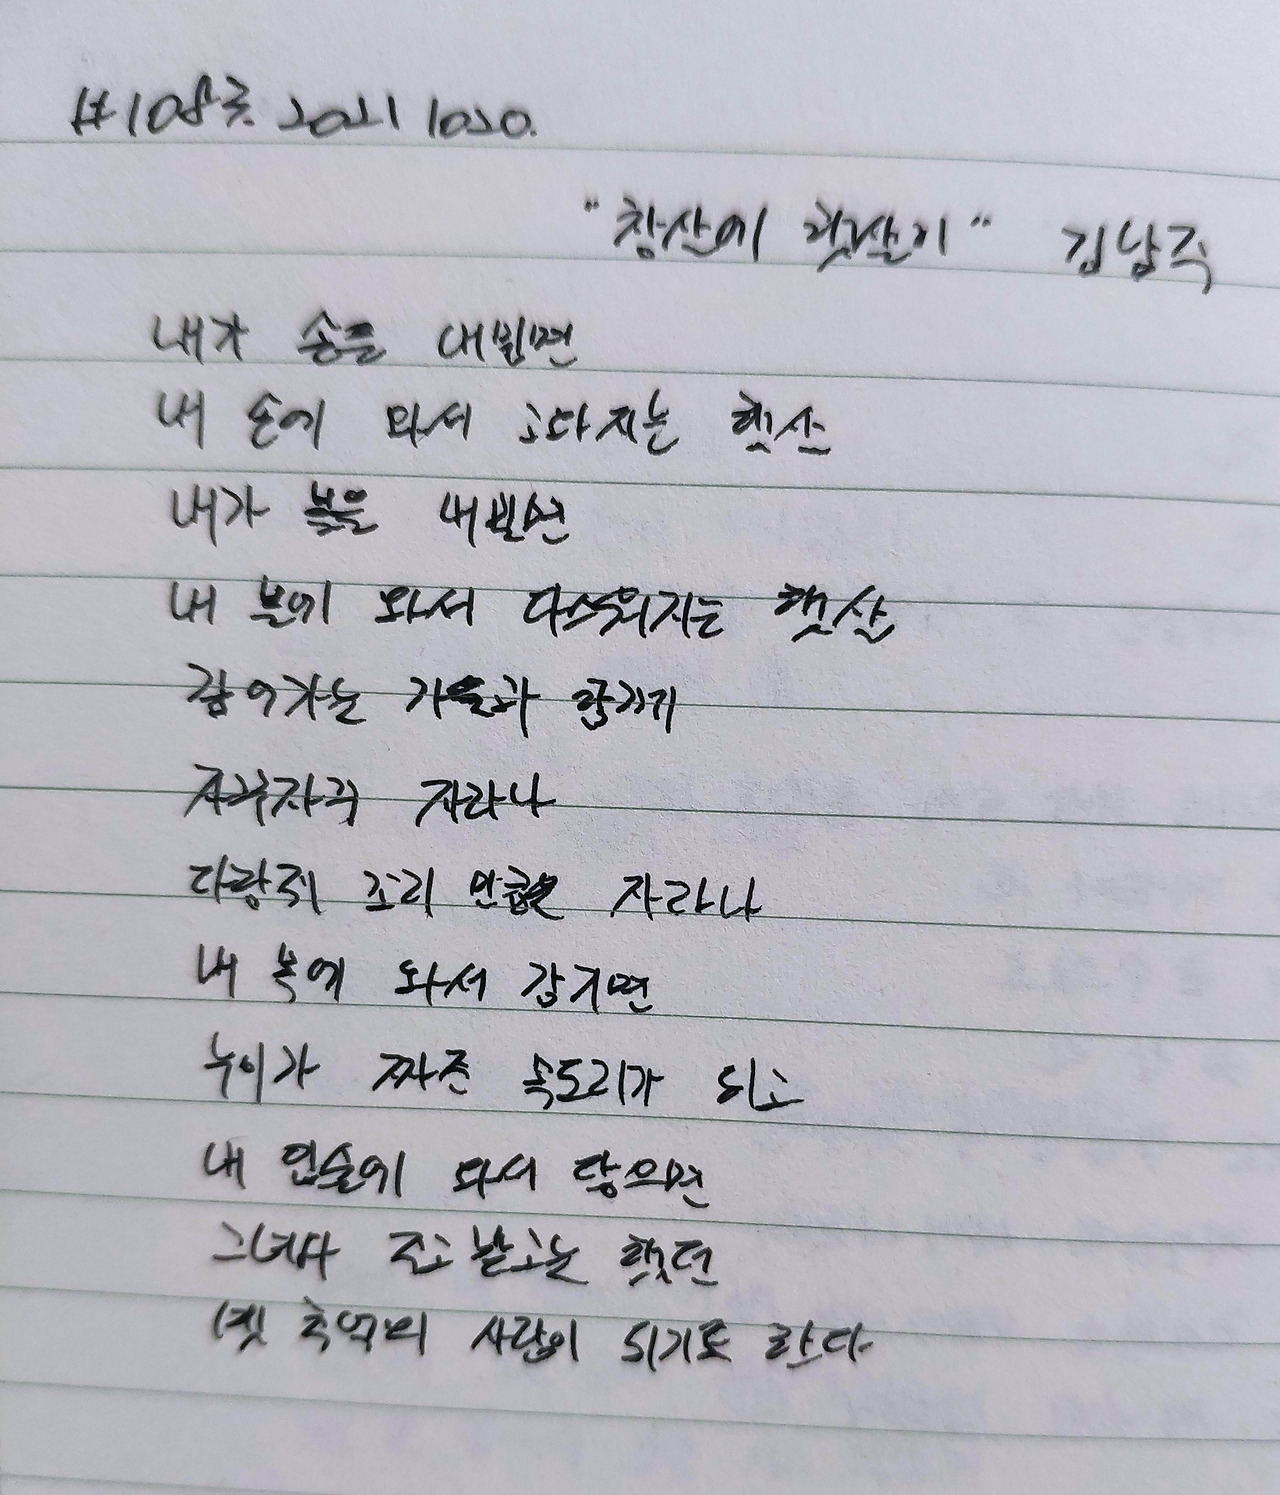 #108일차 20211020.
"창살에 햇살이" 김남주
내가 손을 내밀면
내 손에 와서 고와지는 햇살
내가 볼을 내밀면
내 볼에 와서 다스워지는 햇살
깊어가는 가을과 함께
자꾸자꾸 자라나
다람쥐 꼬리 만큼은 자라나
내 목에 와서 감기면
누이가 짜준 목도리가 되고
내 입술에 와서 닿으면
그녀와 주고 받고는 했던
옛 추억의 사랑이 되기도 한다